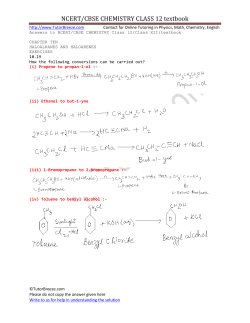 NCERT/CBSE CHEMISTRY CLASS 12 textbook
http://www.TutorBreeze.com Contact for Online Tutoring in Physics, Math, Chemistry, English
Answers to NCERT/CBSE CHEMISTRY Class 12(Class XII)textbook
CHAPTER TEN
HALOALKANES AND HALOARENES
EXERCISES
10.19
How the following conversions can be carried out?
(i) Propene to propan-1-ol :-
Propene
Propane-1-ol
(ii) Ethanol to but-1-yne
CH3CH2OH + HCl → CH3CH2Cl + H2O
CH3CH2Cl + HC≡CNa → CH3CH2-C≡CH + NaCl
But-1-yne
(iii) 1-Bromopropane to 2-Bromopropane :-
1-Bromopropane
Propene
2-Bromo Propane
(iv) Toluene to benzyl alcohol :-
CH3
CH2Cl
CH2OH
Sunlight
+ KOH(aq)
+ KCl
Toluene
Benzyl chloride
Benzyl alcohol
©TutorBreeze.com
Please do not copy the answer given here
Write to us for help in understanding the solution